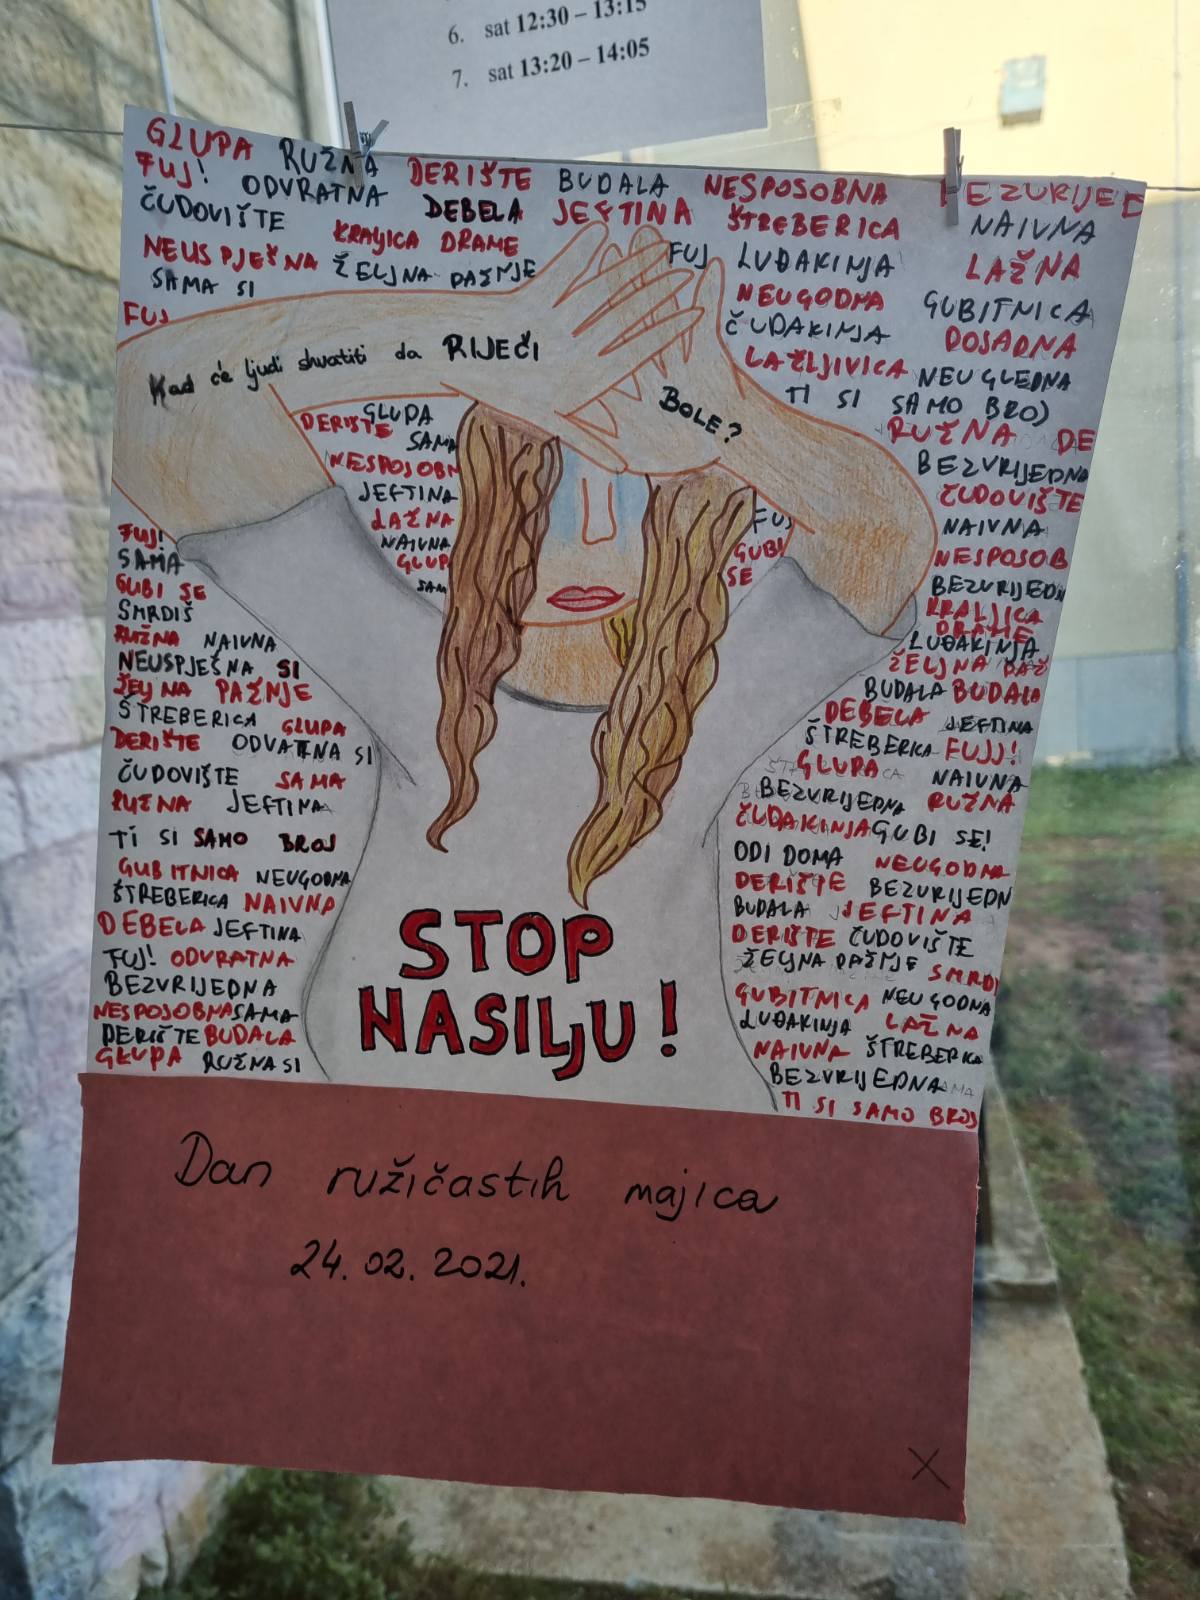 6. sat 12:30 – 13:15
7. sat 13:20 – 14:05
GLUPA RUŽNA DERIŠTE BUDALA NESPOSOBNA
FUJ! ODVRATNA DEBELA JEFTINA ŠTREBERICA NAIVNA
ČUDOVIŠTE KRALJICA DRAME FUJ LUĐAKINJA LAŽNA
NEUSPJEŠNA ŽELJNA PAŽNJE NEUGODNA GUBITNICA
SAMA SI ČUDAKINJA DOSADNA
FUJ LAŽLJIVICA NEUGLEDNA
TI SI SAMO BROJ
Kad će ljudi shvatiti da RIJEČI
BOLE?
DERIŠTE GLUPA
SAMA
NESPOSOBN
JEFTINA
LAŽNA
NAIVNA
GLUP
SAM
FUJ
GUBI
SE
RUŽNA DE
BEZVRIJEDNA
ČUDOVIŠTE
NAIVNA
NESPOSOB
BEZVRIJEDN
KRALJICA
DRAME
LUĐAKINJA
ŽELJNA PAŽ
BUDALA BUDALA
DEBELA JEFTINA
ŠTREBERICA FUJJ!
GLUPA NAIVNA
BEZVRIJEDNA RUŽNA
ČUDAKINJA GUBI SE!
ODI DOMA NEUGODNA
DERIŠTE BEZVRIJEDN
BUDALA JEFTINA
DERIŠTE ČUDOVIŠTE
ŽELJNA PAŽNJE SMRDI
GUBITNICA NEUGODNA
LUĐAKINJA LAŽNA
NAIVNA ŠTREBERICA
BEZVRIJEDNA
TI SI SAMO BROJ
FUJ!
SAMA
GUBI SE
SMRDIŠ
RUŽNA NAIVNA
NEUSPJEŠNA SI
ŽELJNA PAŽNJE
ŠTREBERICA GLUPA
DERIŠTE ODVATNA SI
ČUDOVIŠTE SAMA
RUŽNA JEFTINA
TI SI SAMO BROJ
GUBITNICA NEUGODNA
ŠTREBERICA NAIVNA
DEBELA JEFTINA
FUJ! ODVRATNA
BEZVRIJEDNA
NESPOSOBNA SAMA
DERIŠTE BUDALA
GLUPA RUŽNA SI
STOP
NASILJU!
Dan ružičastih majica
24. 02. 2021.
X